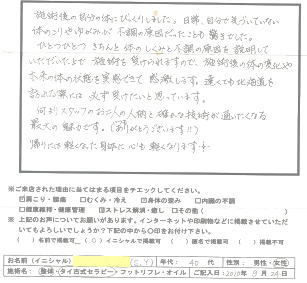 施術後の自分の体にびっくりしました。日頃、自分で気づいていない
体のこりやゆがみが不調の原因だったことに驚きでした。
ひとつひとつきちんと体のしくみと不調の原因を説明して
いただいた上で施術を受けられますので、施術後の体の変化や
本来の体の状態を実感できて感激します。遠くても北海道を
訪れた際には必ず受けたいと思っています。
何よりスタッフのお二人の人柄と確かな技術が通いたくなる
最大の魅力です。(ありがとうございます!!)
帰りには軽くなった身体に心も軽くなります
※ご来店された理由に当てはまる項目をチェックしてください。
☑肩こり・腰痛 □むくみ・冷え ☑身体の歪み □内臓の不調
□健康維持・健康管理 ☑ストレス解消・癒し □その他( )
※ 上記のお声についてお願いがあります。インターネットや印刷物などに掲載させていただい
てもよろしいでしょうか?下記の中から○印をお付け下さい。
( )名前で掲載可 (○)イニシャルで掲載可 ( )匿名で掲載可 ( )掲載不可
お名前(イニシャル) (C.Y) 年代: 40 代 性別: 男性・女性
施術名: 整体・タイ古式セラピー・フットリフレ・オイル ご記入日: 2010年 9月 24日